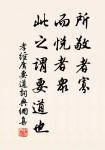 所敬者寡
而悅者衆
此之謂要道也
孝經廣要道詞典網